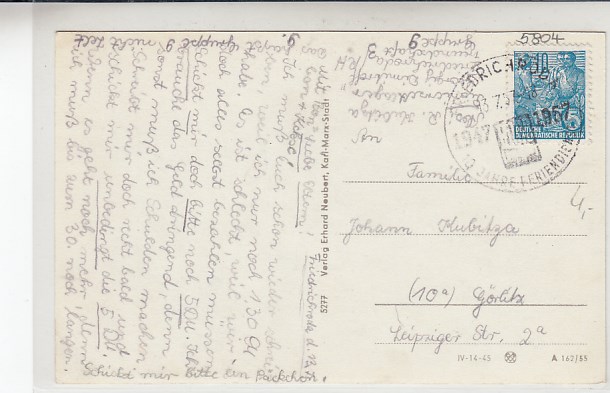 Friedrichroda, d. 12.
Meine lieben Eltern!
Ich muß Euch schon wieder schrei-
ben, weil ich nur noch 1.30 DM
habe. Es ist schlecht, weil wir
doch alles selbst bezahlen müssen.
Schickt mir doch bitte noch 5 DM. Ich
brauche das Geld dringend, denn
sonst muß ich Schulden machen
Schreibt mir doch recht bald und
schickt mir unbedingt die 5 DM.
Wenn es geht noch mehr, denn
ich muß bis zum 30. noch langen.
Schickt mir bitte ein Päckchen!
Gruppe 9
Verlag Erhard Neubert, Karl-Marx-Stadt
5277
5804
FRIEDRICHRODA
1947 1957
10 JAHRE FERIENDIENST
DEUTSCHE
DEMOKRATISCHE REPUBLIK
An
Familie
Johann Kubitza
(10a) Görlitz
Leipziger Str. 2a
4,-
IV-14-45
A 162/55